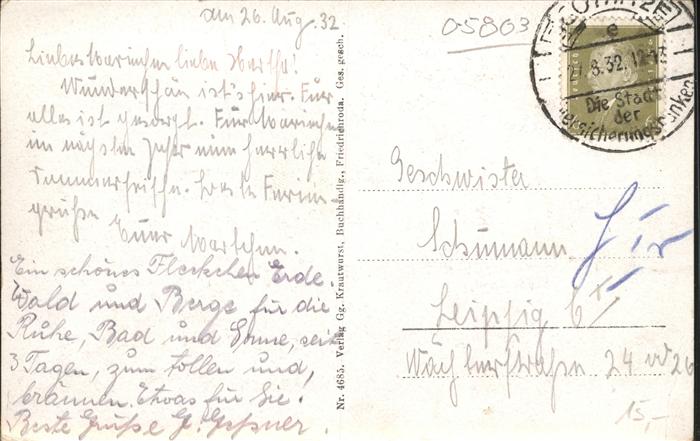 am 26. Aug. 32
05803
Liebes Mariechen liebe Hertha!
Wunderschön ist's hier. Für
alles ist gesorgt. Für Mariechen
im nächsten Jahr eine herrliche
Sommerfrische. Beste Ferien-
grüße
Euer
Ein schönes Fleckchen Erde.
Wald und Berge für die
Ruhe, Bad und Sonne, seit
3 Tagen, zum tollen und
bräunen. Etwas für Sie.
Beste Grüße G. Geßner.
Nr. 4685. Verlag Gg. Krautwurst, Buchhändlg., Friedrichroda. Ges. gesch.
GOTHA
e
8.32.12
Die Stadt
der
Versicherungsbanken
Geschwister
Schumann
Leipzig
Wächterstraße 24 od 26
15,-